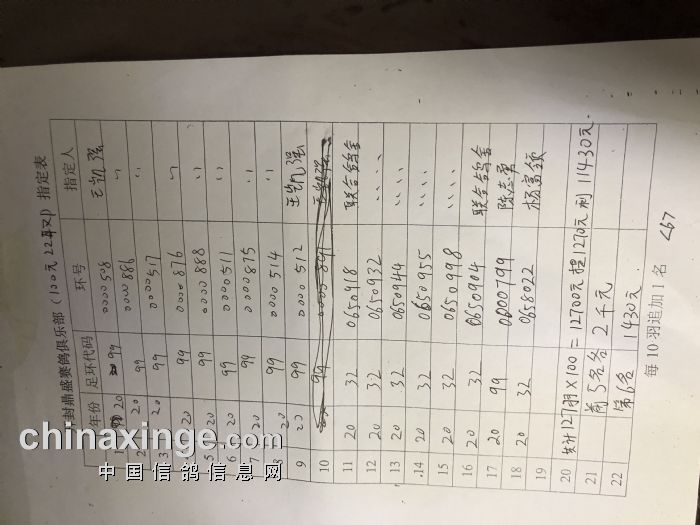 封鼎盛赛鸽俱乐部(100元 22取1)指定表
年份 足环代码 环号 指定人
1 20 99 0000508 王凯强
2 20 99 0000886 〃
3 20 99 0000517 〃
4 20 99 0000876 〃
5 20 99 0000888 〃
6 20 99 0000511 〃
7 20 99 0000875 〃
8 20 99 0000514 〃
9 20 99 0000512 王凯强
10 99
11 20 32 0650918 联合鸽舍
12 20 32 0650932 〃
13 20 32 0650944 〃
14 20 32 0650955 〃
15 20 32 0650998 〃
16 20 32 0650904 联合鸽舍
17 20 99 0000799
18 20 32 0658022
19
20 共计127羽×100=12700元 提1270元 剩11430元.
21 前5名各2千元
22 第6名 1430元.
每10羽追加1名 <67
chinaxinge.com
中国信鸽信息网